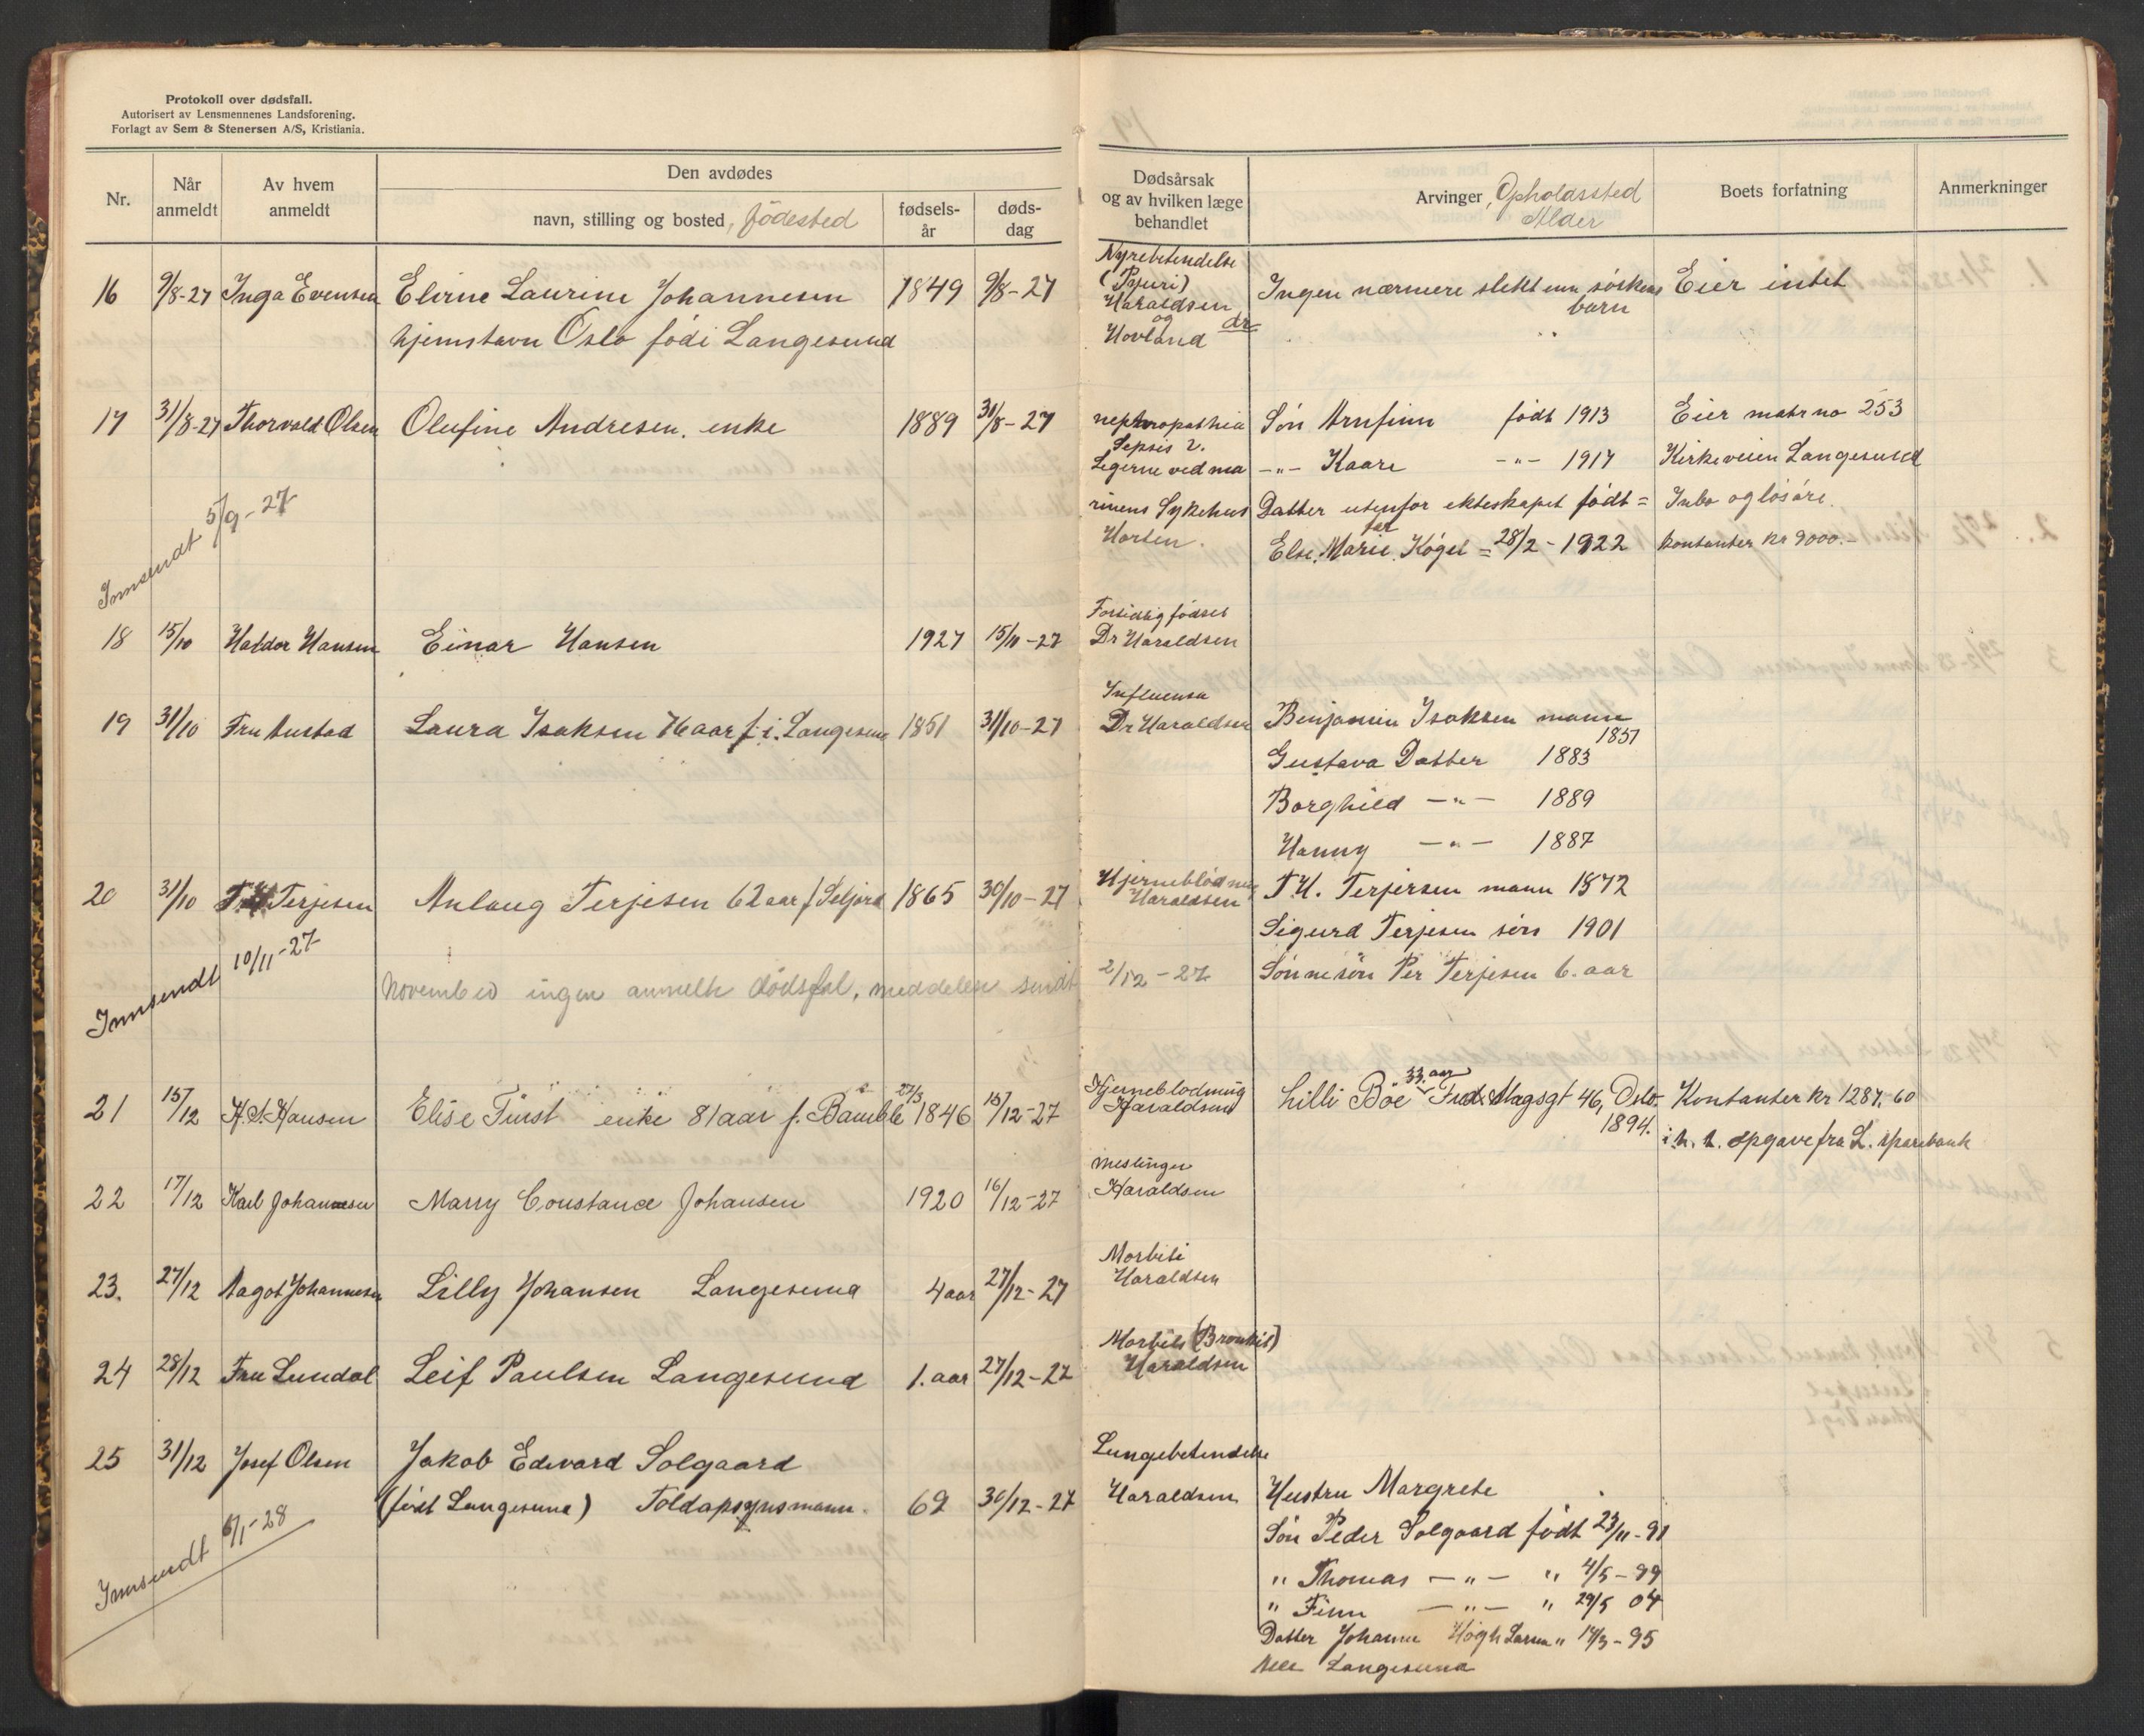 Protokoll over dødsfall.
Autorisert av Lensmennenes Landsforening.
Forlagt av Sem & Stenersen A/S, Kristiania.
Nr.
Når anmeldt
Av hvem anmeldt
Den avdødes
navn, stilling og bosted, födested
fødsels-år
døds-dag
Dødsårsak og av hvilken læge behandlet
Arvinger, Opholdssted Alder
Boets forfatning
Anmerkninger
16 9/8-27 Inga Evensen Elirne Laurine Johannesen 1849 9/8-27
hjemstavn Oslo födi Langesund
Nyrebetendelse
Haraldsen
og
Hovland dr
Ingen nærmere slekt enn söskens
barn
Eier intet
17 31/8-27 Thorvald Olsen Olufine Andresen. enke 1889 31/8-27
nephropathia
Sepsis 2.
Legerne ved ma
rinens Sykehus
Horten.
Sön Arnfinn födt 1913
-"- Kaare -"- 1917
Datter utenfor ekteskapet födt =
Else. Marie Kögel = 28/2 - 1922
far
Eier matr no 253
Kirkeveien Langesund
Inbo og lösöre.
kontanter kr 9000.-
Innsendt 5/9-27
18 15/10 Haldor Hansen Einar Hansen 1927 15/10-27
Fortidlig födsel
Dr Haraldsen
19 31/10 Fru Austad Laura Isaksen 76 aar f. i. Langesund 1851 31/10-27
Influensa
Dr Haraldsen
Benjamin Isaksen mann
1851
Gustava Datter 1883
Borghild -"- 1889
Hanny -"- 1887
20 31/10 T H Terjesen Anlaug Terjesen 62 aar f Seljord 1865 30/10-27
Hjerneblödning
Haraldsen
T H. Terjersen mann 1872
Sigurd Terjesen sön 1901
Sönnesön Per Terjesen 6. aar
Innsendt 10/11-27
November ingen anmelte dödsfal, meddelse sendt 2/12-27
21 15/12 H. S. Hansen Elise Fürst enke 81 aar f. Bamble 27/3 1846 15/12-27
Hjerneblodning
Haraldsen
Lilli Böe 33. aar Fred. Slagsgt 46, Oslo.
1894.
Kontanter kr 1287,60
i h. t. opgave fra L. sparebank
22 17/12 Karl Johannesen Marry Constance Johansen 1920 16/12-27
Meslinger
Haraldsen
23. 27/12 Aagot Johannesen Lilly Johansen Langesund 4 aar 27/12-27
Morbili
Haraldsen
24 28/12 Fru Lundal Leif Paulsen Langesund 1. aar 27/12-27
Morbili (Bronkit)
Haraldsen
25 31/12 Josef Olsen Jakob Edvard Solgaard
(födt Langesund) Toldopsynsmann. 69 30/12-27
Lungebetendelse
Haraldsen
Hustru Margrete
Sön Peder Solgaard födt 23/11-91
" Thomas -"- " 4/5-99
" Finn -"- " 29/5 04
Datter Johanne Högh Larsen " 14/3-95
Alle Langesund
Innsendt 6/1-28